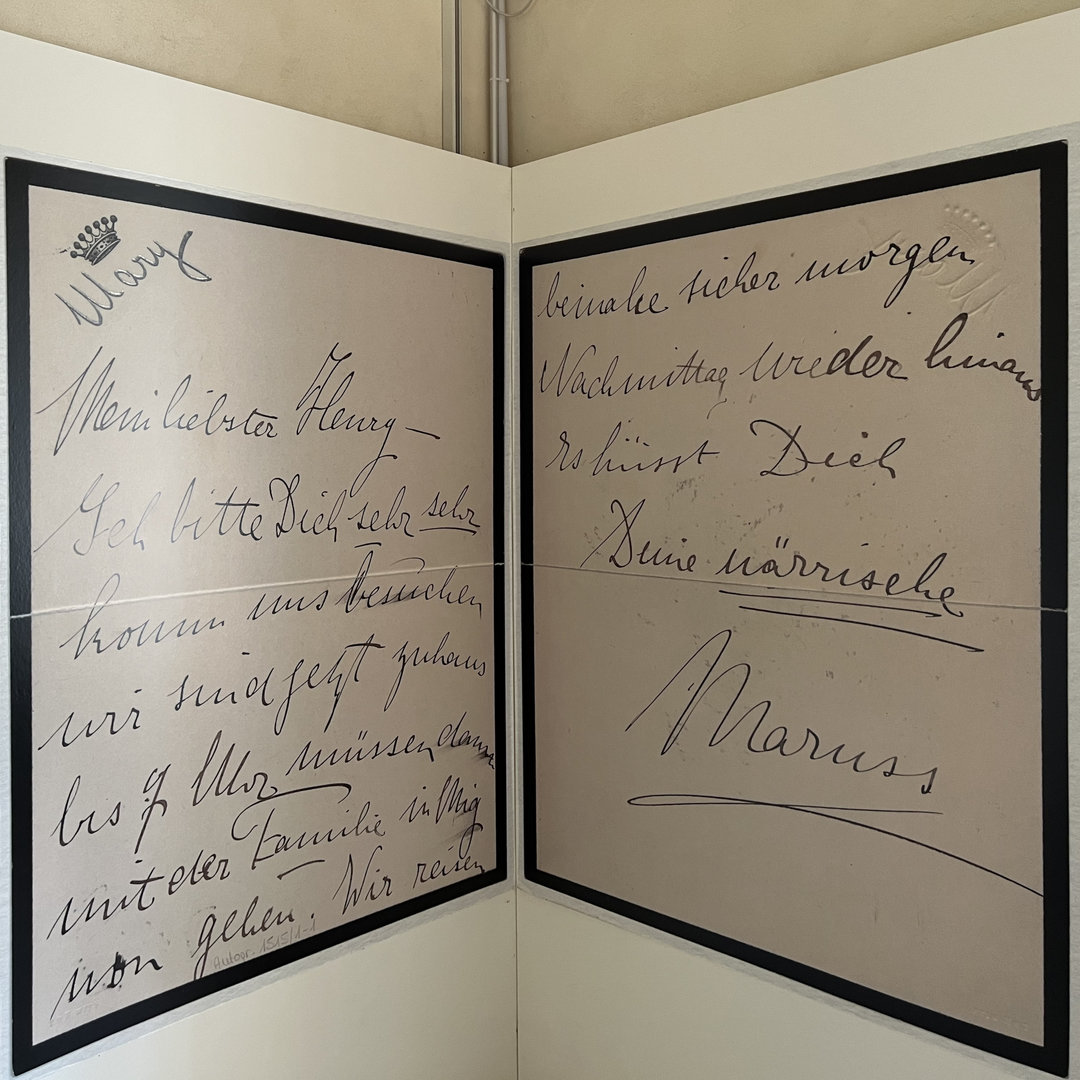 Mary
Mein liebster Henry —
Ich bitte Dich sehr sehr
komm uns besuchen
wir sind jetzt zuhaus
bis 9 Uhr müssen dann
mit der Familie in Mig
non gehen. Wir reisen
Autogr. 1515/1-1
beinahe sicher morgen
Nachmittag wieder hinaus
Es küsst Dich
Deine närrische
Maruss